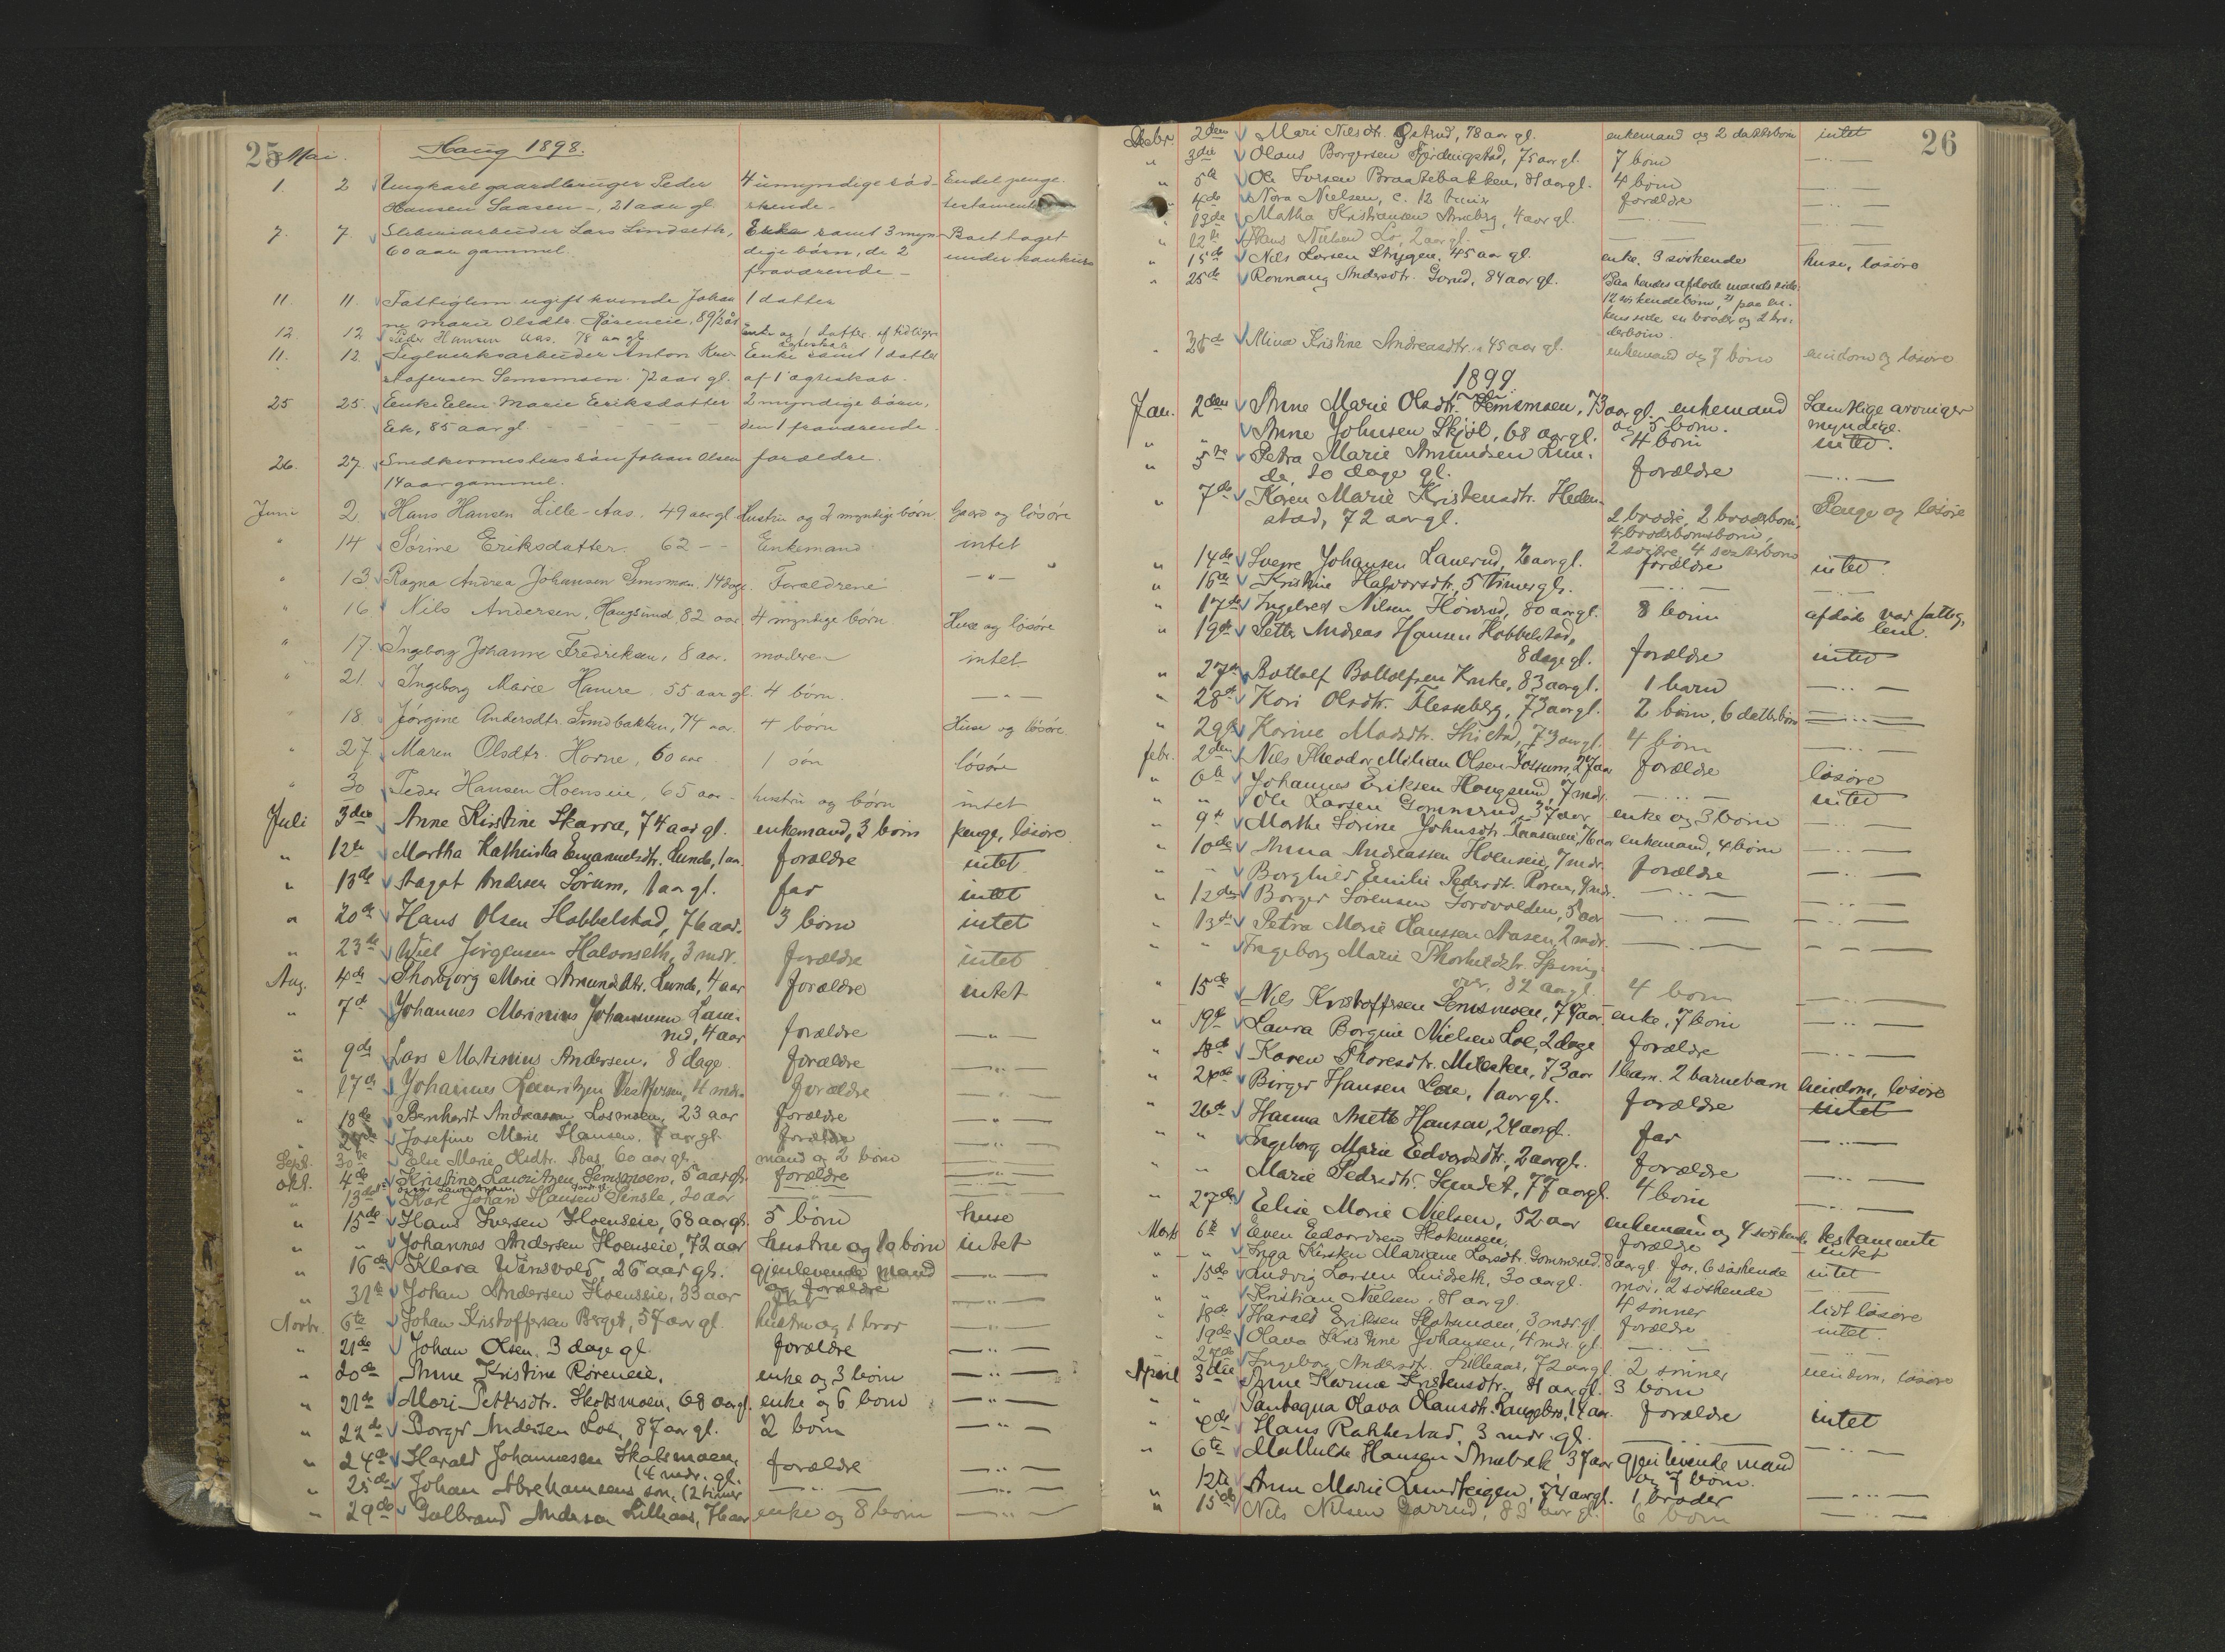 25 Mai. Haug 1898.
1. 2 Ungkarl gaardbruger Peder 4 umyndige söd- Endel penge.
Hansen Saasen -, 21 aar gl. skende. testament
7. 7. Sliberiarbeider Lars Lindseth, Enke samt 3 myn- Boet taget
60 aar gammel. dige börn, de 2 under konkurs
fraværende -
11. 11. Fattiglem ugift kvinde Johan 1 datter
ne Marie Olsdtr. Röreneie, 89½ år
12. 12 Peder Hansen Aas. 78 aar gl. Enke og 1 datter af tidligere
ægteskab
11. 12. Teglverksarbeider Anton Kri- Enke samt 1 datter
stofersen Semsmoen. 72 aar gl. af 1' ægteskab.
25 25. Enke Elen Marie Eriksdatter 2 myndige börn,
Eek, 85 aar gl. den 1 fraværende.
26. 27. Snedkermesters sön Johan Olsen forældre.
14 aar gammel.
Juni 2 Hans Hansen Lille-Aas. 49 aar gl Hustru og 2 myndige börn Gaard og lösöre
" 14 Sörine Eriksdatter. 62 - - Enkemand intet
" 13 Ragna Andrea Johansen Semsmoen. 14 dage. Forældrene — " —
" 16 Nils Andersen, Haugsund, 82 aar 4 myndige börn Huse og lösöre
" 17. Ingeborg Johanne Fredriksen, 8 aar. moderen intet
" 21. Ingeborg Marie Hamre. 55 aar gl. 4 börn. — " —
18. Jörgine Andersdtr. Sundbakken, 74 aar. 4 börn Huse og lösöre.
" 27 Maren Olsdtr. Horne, 60 aar 1 sön lösöre
" 30 Peder Hansen Hoenseie, 65 aar - hustru og börn intet
Juli 3die Anne Kirstine Skarra, 74 aar gl. enkemand, 3 börn penge, lösöre
" 12te Martha Kathinka Emanuelsdtr. Lunde, 1 aar forældre intet
" 13de Aagot Andersen Sörum, 1 aar gl. far intet
" 20de Hans Olsen Hobbelstad, 76 aar. 3 börn intet
" 23de Jörgensen Halvorseth, 3 mdr. forældre intet
Aug. 4de Thorbjörg Marie Amundsdtr. Lunde, 4 aar forældre intet
" 7de Johannes Marinius Johannesen Laue-
rud, 4 aar forældre — " —
" 9de Lars Matinius Andersen, 8 dage forældre — " —
" 17de Johannes Lauritzen 4 mdr. forældre — " —
" 18de Bernhardt Andreasen Losmoen, 23 aar forældre — " —
Josefine Marie Hansen, 7 aar gl. forældre — " —
Sept. 30te Else Marie Olsdtr. Aas 60 aar gl. mand og 2 börn — " —
Okt. 4de Kristine Lauritzen Semsmoen, 5 aar gl. forældre — " —
" 13de Karl Johan Hansen Tensle, 20 aar — " — — " —
" 15de Hans Iversen Hoenseie, 68 aar gl. 5 börn huse
" " Johannes Andersen Hoenseie, 72 aar hustru og 10 börn intet
" 16de Klara Wamsvold, 26 aar gl. gjenlevende mand — " —
og forældre
" 31te Johan Andersen Hoenseie, 33 aar far — " —
Novbr. 6te Johan Kristoffersen Berget, 57 aar gl. hustru og 1 bror — " —
" 21de Johan Olsen, 3 dage gl. forældre — " —
" 20de Anne Kristine Röreneie. enke og 3 börn — " —
" 21de Mari Pettersdtr. Skotsmoen, 68 aar gl. enke og 6 börn — " —
" 22de Borger Andersen Loe, 87 aar gl. 2 börn — " —
" 24de Harald Johannesen Skotsmoen,
(4 mdr. gl. forældre — " —
" 25de Johan Abrahamsens sön, (2 timer — " — — " —
" 29de Gulbrand Andersen Lilleaas, 76 aar enke og 8 börn — " —
26
Debr. 2den Mari Nilsdtr. Östrud, 78 aar gl. enkemand og 2 datterbörn intet
" 3die Olaus Borgersen Fjerdingstad, 75 aar gl. 7 börn — " —
" 5te Ole Iversen Braatebakken, 81 aar gl. 4 börn — " —
" 4de Nora Nielsen, c. 12 timer forældre — " —
" 13de Matha Kristiansen Arneberg, 4 aar gl. — " — — " —
" 12te Nielsen Lo, 2 aar gl. — " — — " —
" 15de Nils Larsen Strygen, 45 aar gl. enke, 3 söskende huse, lösöre
" 25de Ronnaug Andersdtr. Gorud, 84 aar gl. Paa hendes afdöde mands side
12 söskendebörn, paa en-
kens side en broder og 2 bro-
derbörn.
" 28de Alma Kristine Andreasdtr. 45 aar gl. enkemand og 7 börn eiendom og lösöre
1899.
Jan. 2den Anne Marie Olsdtr. Semsmoen, 73 aar gl. enkemand Samtlige arvinger
og 5 börn. myndige.
" " Anne Johnsen Skjöl, 68 aar gl. 4 börn intet.
" 5te Petra Marie Amundsen Lun-
de, 10 dage gl. forældre — " —
" 7de Karen Marie Kristensdtr. Heden-
stad, 72 aar gl. 2 brødre, 2 broderbörn, Penge og lösöre
4 broderbarnsbörn,
2 söstre, 4 sösterbörn
" 14de Sverre Johansen Lauerud, 2 aar gl. forældre intet
" 16de Kristine Halvorsdtr, 5 timer gl. — " — — " —
" 17de Ingebret Nilsen Hönerud, 80 aar gl. 8 börn afdöde var fattig-
lem.
" 19de Petter Andreas Hansen Hobbelstad,
8 dage gl. forældre intet
" 27de Bottolf Bottolfsen Kruke, 83 aar gl. 1 barn — " —
" 28de Kari Olsdtr. Flesseberg, 73 aar gl. 2 börn, 6 datterbörn — " —
" 29de Karine Madsdtr. 73 aar gl. 4 börn — " —
Febr. 2den Nils Theodor Milian Olsen Fossum, 27 aar forældre lösöre
" 6te Johannes Eriksen Haugsund, 7 mdr. — " — intet
" " Ole Larsen Gommerud, 37 aar enke og 3 börn — " —
" 9de Marthe Sörine Johnsdtr. 76 aar enkemand, 4 börn — " —
" 10de Anna Andreassen Hoenseie, 7 mdr. forældre — " —
" " Borghild Emilie Pedersdtr. Roren, 9 mdr. — " — — " —
" 12te Borger Sörensen Sorovolden, 5 aar — " — — " —
" 13de Petra Marie Hanssen Aasen, 2 mdr. — " — — " —
" " Ingeborg Marie Thorkildsdtr. Spering-
82 aar gl. 4 börn — " —
" 15de Nils Kristoffersen Semsmoen, 79 aar. enke, 7 börn — " —
" 19de Laura Borgine Nielsen Loe, 2 dage forældre — " —
" 18de Karen Thoresdtr. Milesten, 73 aar 1 barn. 2 barnebarn eiendom, lösöre
" 24de Birger Hansen Loe, 1 aar gl. forældre intet
" 26de Hanna Anette Hansen, 24 aar gl. far — " —
" " Ingeborg Marie Edvardsdtr, 2 aar gl. forældre — " —
" " Marie Pedersdtr. Sundet, 77 aar gl. 4 börn — " —
" 27de Elise Marie Nielsen, 52 aar enkemand og 4 söskende testamente
Marts 6te Even Edvardsen Skotsmoen, forældre intet
" " Inga Kirsten Mariane Larsdtr. Gommerud. 8 aar gl. far, 6 söskende intet
" 15de Ludvig Larsen Lindseth, 30 aar gl. mor, 2 söskende
" " Kristian Nielsen, 81 aar gl. 4 sönner lidt lösöre
" 18de Harald Eriksen Skotsmoen, 3 mdr. gl. forældre intet.
" 19de Olava Kristine Johansen, 4 mdr. gl. — " — — " —
" 27de Ingeborg Andersdtr. Lilleaas, 72 aar gl. 2 sönner eiendom, lösöre
April 3die Anne Karine Kristensdtr, 81 aar gl. 3 börn
" " Olava Olausdtr. Langebro, 14 aar. forældre intet
" Hans Rakkestad, 3 mdr. gl. — " — — " —
" 6te Mathilde Hansen 37 aar gjenlevende mand
og 7 börn.
" 12te Anne Marie Lundteigen, 74 aar gl. 1 broder — " —
" 15de Nils Nilsen Garrud, 83 aar gl. 6 börn — " —